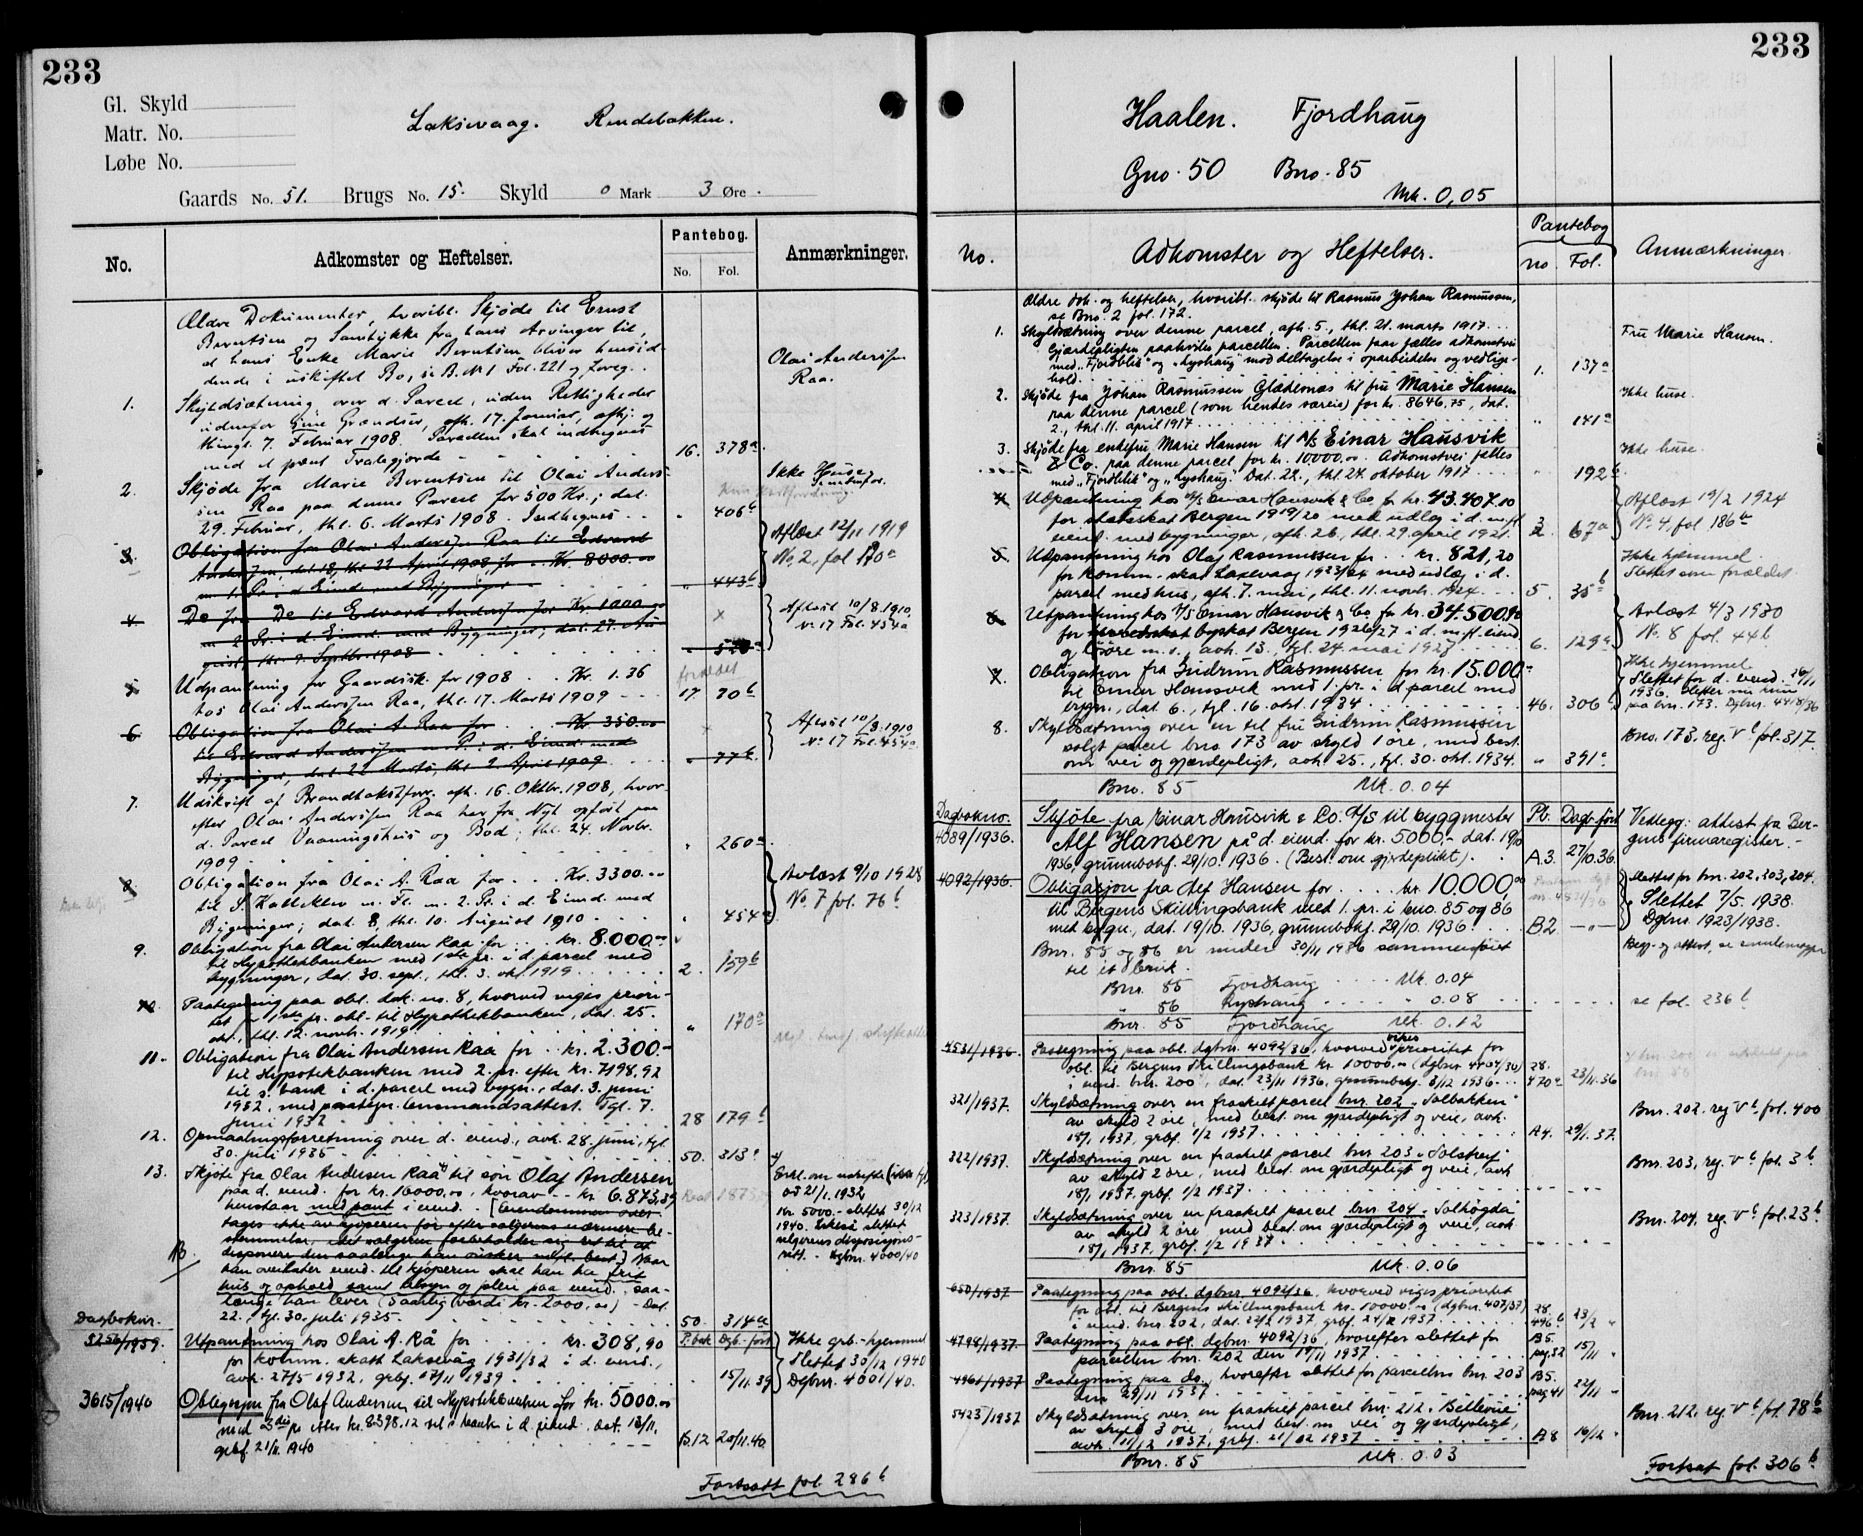 233
Gl. Skyld
Matr. No.
Løbe No.
Laksevaag. Rindebakken.
Gaards No. 51. Brugs No. 15. Skyld 0 Mark 3 Øre.
No. Adkomster og Heftelser. Pantebog. No. Fol. Anmærkninger.
Ældre Dokumenter, hvoribl. Skjøde til Ernst
Berentsen og Samtykke fra hans Arvinger til,
at hans Enke Marie Berentsen bliver hensid-
dende i uskiftet Bo, se B. No 1 Fol. 221 og foreg.
Olai Andersen
Raa.
1. Skyldsætning over d. Parcel, uden Rettigheder
udenfor sine Grændser, afh. 17. Januar, afhj. og
thingl. 7. Februar 1908. Parcellen skal indhegnes
med et pent Trægjerde 16. 378a
2. Skjøde fra Marie Berentsen til Olai Anders-
sen Raa paa denne Parcel for 500 Kr.; dat.
29. Februar, thl. 6. Marts 1908. Indhegnes " 406b
Ikke Huse
3. Obligation fra Olai Andersen Raa til Edvard
Andersen, dat. 18, thl. 22 April 1908, for Kr. 8000.00
m. 1. Pr. i d. Eiend. med Bygninger " 443b
Aflæst 12/11 1919
No. 2, fol 170a
4. Do fra Do til Edvard Andersen for Kr. 1000.00
m 2 Pr. i d. Eiend. med Bygninger; dat. 27. Au-
gust, thl. 9. Septbr. 1908
Aflæst 10/8 1910
No 17 Fol. 454a
5. Udpantning for Gaardsk. for 1908 Kr. 1.36
hos Olai Andersen Raa, thl. 17. Marts 1909 17 70b
forældet
6. Obligation fra Olai A. Raa for Kr. 350.00
til Edvard Andersen m. Pr. i d. Eiend. med
Bygninger, dat. 22 Marts, thl. 2. April 1909 " 77b
Aflæst 10/8 1910
No 17 Fol. 454a
7. Udskrift af Brandtakstforr. afh. 16. Oktbr. 1908, hvor-
efter Olai Andersen Raa har fra Nyt opført paa
d. Parcel Vaaningshus og Bod; thl. 24. Novbr.
1909 " 260a
8. Obligation fra Olai A. Raa for Kr. 3300.00
til S. Kalleklev m. Fl. m. 2. Pr. i d. Eiend. med
Bygninger; dat. 8, thl. 10. August 1910 " 454a
Avlæst 9/10 1928
No. 7 fol. 76b
9. Obligation fra Olai Andersen Raa for kr. 8.000.00
til Hypothekbanken med 1ste pr. i d. parcel med
bygninger, dat. 30. sept., thl. 3. okt. 1919 2. 159b
10. Paategning paa obl. dok. no. 8, hvorved viges priori-
tet for 1ste pr. obl. til Hypothekbanken, dat. 25.
okt., thl. 12. novb. 1919 " 170a
11. Obligation fra Olai Andersen Raa for kr. 2.300.-
til Hypotekbanken med 2. pr. efter kr. 7198,92
til s. bank i d. parcel med bygn., dat. 3. juni
1932, med paategn. lensmandsattest. Tgl. 7.
juni 1932 28 179b
12. Opmaalingsforretning over d. eiend., avh. 28. juni, tgl.
30. juli 1935 50. 313a
13. Skjøte fra Olai Andersen Raa til søn Olaf Andersen
paa d. eiend. for kr. 10000,00, hvorav kr. 6.873,39
henstaar med pant i eiend. [Eiendommen over-
tages ikke av kjøperen før efter sælgerens nærmere be-
stemmelse, idet sælgeren forbeholder sig ret til at
disponere den saalenge han ønsker m/fl. best.] Naar
han overlater eiend. til kjøperen skal han ha frit
hus og ophold samt tilsyn og pleie paa eiend. saa-
længe han lever (5 aarlig værdi kr. 2000,00) - Dat.
22., tgl. 30. juli 1935 50. 314a
Erkl. om uskifte
ad 21/1. 1932
Kr. 5000.- slettet 30/12
1940. Likeså slettet
selgerens disposisjons-
rett. - Dgbnr. 4000/40
Dagboknr. P.bok Dgb.-ført
5256/1939. Utpantning hos Olai A. Rå for kr. 308,90
for komm. skatt Laksevåg 1931/32 i d. eiend.,
avh. 27/5 1932, grbf. 17/11 1939 15/11.39
Ikke grb.-hjemmel
Slettet 30/12 1940
Dgbnr. 4001/40.
3615/1940 Obligasjon fra Olaf Andersen til Hypotekbanken for kr. 5000.00
med 3die pr. etter kr. 8398.12 til s. bank i d. eiend. Dat. 16/11,
grbf. 21/11. 1940 B.12 20/11.40.
Fortsatt fol. 286b
233
Haalen. Fjordhaug
Gno. 50 Bno. 85
Mk. 0,05
No. Adkomster og Heftelser. Pantebog no. Fol. Anmærkninger
Ældre dok. og heftelser, hvoribl. skjøde til Rasmus Johan Rasmussen,
se Bno. 2 fol. 172.
1. Skyldsætning over denne parcel, afh. 5., thl. 21. marts 1917
Gjærdepligten paahviler parcellen. Parcellen faar fælles adkomstvei
med "Fjordblik" og "Lyshaug" mod deltagelse i oparbeidelse og vedlige-
hold. 1. 137a
Fru Marie Hansen.
2. Skjøde fra Johan Rasmussen Gladernæs til fru Marie Hansen
paa denne parcel (som hendes særeie) for kr. 8646,75, dat.
2., thl. 11. april 1917 " 141a
Ikke huse.
3. Skjøde fra enkefru Marie Hansen til A/S Einar Hausvik
& Co. paa denne parcel, for kr. 10000.00. Adkomstvei fælles
med "Fjordblik" og "Lyshaug". Dat. 22., thl. 24. oktober 1917 192b
Ikke huse.
4. Utpantning hos A/S Einar Hausvik & Co. for kr. 43.407.10
for statsskat Bergen 1919/20 med utlæg i d. m.fl.
eiend. med bygninger, afh. 26., thl. 29. april 1921. 67a
Aflæst 19/2 1924
No. 4, fol 186b
5. Utpantning hos Olaf Rasmussen for kr. 821,20
for komm. skat Laxevaag 1923/24 med utlæg i d.
parcel med hus, afh. 7. mai, thl. 11. novb. 1924. 5. 35b
Ikke hjemmel.
Slettet som forældet
6. Utpantning hos A/S Einar Hausvik & Co. for kr. 34.500,90
for byskat Bergen 1926/27 i d. m.fl. eiend
og løsøre m. v., avh. 13., tgl. 24. mai 1927 6. 129a
Avlæst 4/3 1930
No. 8 fol. 44b
7. Obligation fra Gudrun Rasmussen for kr. 15.000.-
til Einar Hausvik med 1. pr. i d. parcel med
bygn., dat. 6., tgl. 16. okt. 1934 46. 306b
Ikke hjemmel
Slettet for d. eiend. 26/11
1936.
paa bnr. 173. Dgbnr. 4418/36
8. Skyldsætning over en til fru Gudrun Rasmussen
solgt parcel bno. 173 av skyld 1 øre, med best.
om vei og gjærdepligt, avh. 25., tgl. 30. okt. 1934. " 391a
Bno. 173, reg. Vb fol. 317.
Bno. 85 Mk. 0.04
Dagbokno. Pb. Dagb.ført
4089/1936. Skjøte fra Einar Hausvik & Co. A/S til byggmester
Alf Hansen på d. eiend. for kr. 5.000,- dat. 19/10
1936, grunnbokf. 29/10. 1936. (Best. om gjerdeplikt). A.3. 27/10.36.
Vedlegg: attest fra Ber-
gens firmaregister.-
4092/1936. Obligasjon fra Alf Hansen for kr. 10.000,00
til Bergens Skillingsbank med 1. pr. i bno. 85 og 86
med bygn., dat. 19/10. 1936, grunnbokf. 29/10. 1936. B2 —"—
Slettet for bnr. 202, 203, 204.
Slettet 7/5. 1938.
Dgbnr. 1923/1938.
Bnr. 85 og 86 er under 30/11 1936 sammenføiet
til et bruk.
Bnr. 85 Fjordhaug Mk. 0.04
" 86 Lyshaug " 0.08
se fol. 236b
Bnr. 85 Fjordhaug Mk. 0.12
4531/1936. Paategning paa obl. dgbnr. 4092/36, hvorved vikes prioritet for
obl. til Bergens Skillingsbank kr. 10000.00 (dgbnr. 4404/36)
i eiend. bnr. 200, dat. 23/11 1936, grunnbokf. 3/12 1936 28. 470a 23/11.36
321/1937. Skyldsætning over en fraskilt parcel bnr. 202 "Solbakken"
av skyld 2 øre, med best. om gjærdepligt og veie, avh.
18/1. 1937, grbf. 1/2 1937 A4. 29/1.37.
Bnr. 202. reg Vb. fol. 400
322/1937. Skyldsætning over en fraskilt parcel bnr. 203 "Solstrej"
av skyld 2 øre, med best. om gjærdepligt og veie, avh
18/1. 1937, grbf. 1/2 1937 " "
Bnr. 203, reg. Vb. fol. 3b.
323/1937. Skyldsætning over en fraskilt parcel bnr. 204 "Solhögda"
av skyld 2 øre, med best. om gjærdepligt og veie, avh.
18/1 1937, grbf. 1/2 1937 " "
Bnr. 204, reg. Vb. fol. 23b
Bnr. 85 Mk. 0.06
650/1937 Paategning paa obl. dgbnr. 4092/36, hvorved viges prioritet
for obl. til Bergens Skillingsbank kr. 10000.00 (dgbnr. 407/37)
i eiend. bnr. 202, dat. 22/2 1937, grbf. 24/2 1937 28. 496b 23/2 "
4798/1937. Paategning paa obl. dgbnr. 4092/36, hvorefter slettet for
parcellen bnr. 202 den 19/11 1937 B5. pag.32 15/11 "
4961/1937 Paategning paa do., hvorefter slettet for parcellen bnr. 203
den 29/11 1937 B5. pag 41 22/11 "
5423/1937 Skyldsætning over en fraskilt parcel bnr. 212 "Bellevue"
av skyld 3 øre, med best. om vei og gjærdepligt,
avh. 11/12 1937, grbf. 21/12 1937 A8 16/12 "
Bnr. 212, reg. Vb fol. 78b
Bnr. 85 Mk. 0.03
Fortsat fol. 306b